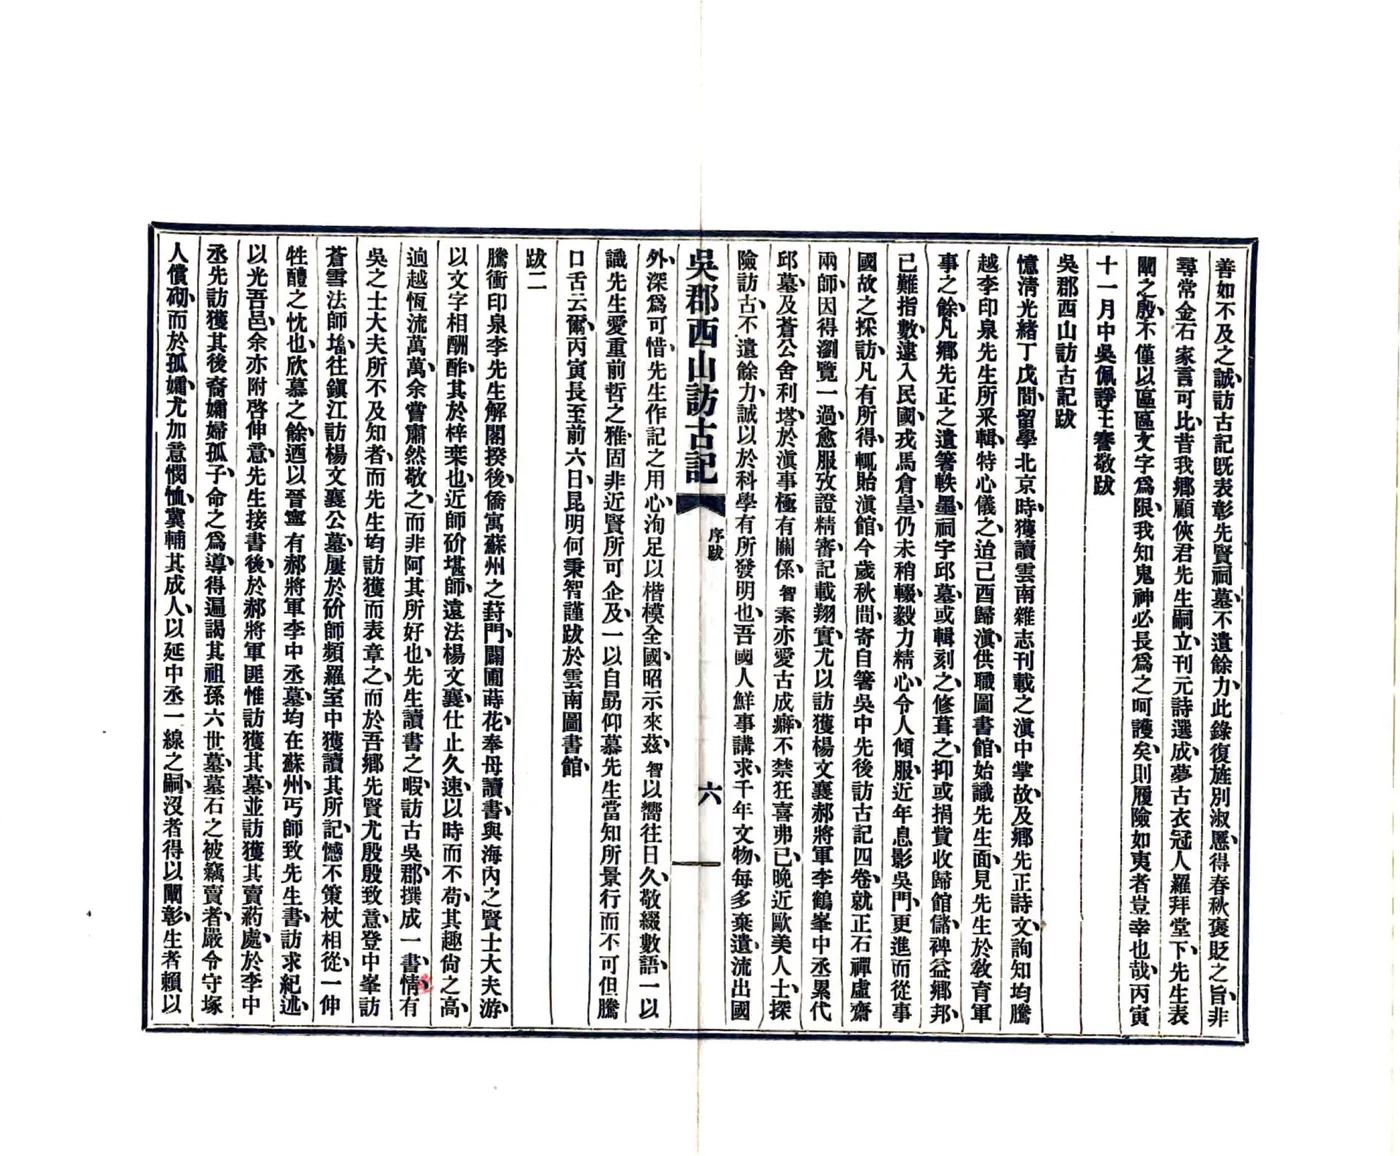 善如不及之誠、訪古記旣表彰先賢祠墓、不遺餘力、此錄復旌別淑慝、得春秋褒貶之旨、非
尋常金石家言可比、昔我鄉顧俠君先生嗣立、刊元詩選成、夢古衣冠人羅拜堂下、先生表
闡之殷、不僅以區區文字爲限、我知鬼神必長爲之呵護矣、則履險如夷者豈幸也哉、丙寅
十一月中吳佩諍王謇敬跋
吳郡西山訪古記跋
憶清光緒丁戊間、留學北京時、獲讀雲南雜志刊載之滇中掌故及鄉先正詩文、詢知均騰
越李印泉先生所釆輯、特心儀之、迨己酉歸滇、供職圖書館、始識先生面、見先生於敎育軍
事之餘、凡鄉先正之遺箸軼墨、祠宇邱墓、或輯刻之、修葺之、抑或捐貲收歸館儲、裨益鄉邦、
已難指數、逮入民國、戎馬倉皇、仍未稍輟、毅力精心、令人傾服、近年息影吳門、更進而從事
國故之採訪、凡有所得、輒貽滇館、今歲秋間、寄自箸吳中先後訪古記四卷、就正石禪虛齋
兩師、因得瀏覽一過、愈服攷證精審、記載翔實、尤以訪獲楊文襄郝將軍李鶴峯中丞累代
邱墓、及蒼公舍利塔、於滇事極有關係、智素亦愛古成癖、不禁狂喜弗已、晚近歐美人士、探
險訪古、不遺餘力、誠以於科學有所發明也、吾國人鮮事講求、千年文物、每多棄遺、流出國
吳郡西山訪古記
序跋
六
外、深爲可惜、先生作記之用心、洵足以楷模全國、昭示來茲、智以嚮往日久、敬綴數語、一以
識先生愛重前哲之雅、固非近賢所可企及、一以自勗仰慕先生當知所景行、而不可但騰
口舌云爾、丙寅長至前六日、昆明何秉智謹跋於雲南圖書館、
跋二
騰衝印泉李先生解閣揆後、僑寓蘇州之葑門、闢圃蒔花、奉母讀書、與海內之賢士大夫游、
以文字相酬酢、其於梓桒也、近師矿堪師、遠法楊文襄、仕止久速、以時而不苟、其趣尙之高、
逈越恆流萬萬、余嘗肅然敬之、而非阿其所好也、先生讀書之暇、訪古吳郡、撰成一書、情有
吳之士大夫所不及知者、而先生均訪獲而表章之、而於吾鄉先賢尤殷殷致意、登中峯訪
蒼雪法師塔、往鎭江訪楊文襄公墓、屢於矿師頻羅室中獲讀其所記、憾不策杖相從、一伸
牲醴之忱也、欣慕之餘、迺以晉寧有郝將軍李中丞墓、均在蘇州、丐師致先生書、訪求紀述、
以光吾邑、余亦附啓伸意、先生接書後、於郝將軍匪惟訪獲其墓、並訪獲其賣葯處、於李中
丞先訪獲其後裔孀婦孤子、命之爲導、得遍謁其祖孫六世墓、墓石之被竊賣者、嚴令守塚
人償砌、而於孤孀尤加意憫恤、冀輔其成人、以延中丞一線之嗣、沒者得以闡彰、生者賴以